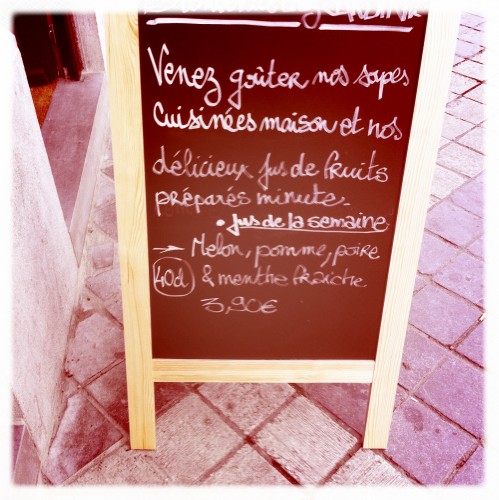 Venez goûter nos sopes
Cuisinées maison et nos
délicieux jus de fruits
préparés minute.
• jus de la semaine
→ Melon, pomme, poire
40cl & menthe fraîche
3,90€